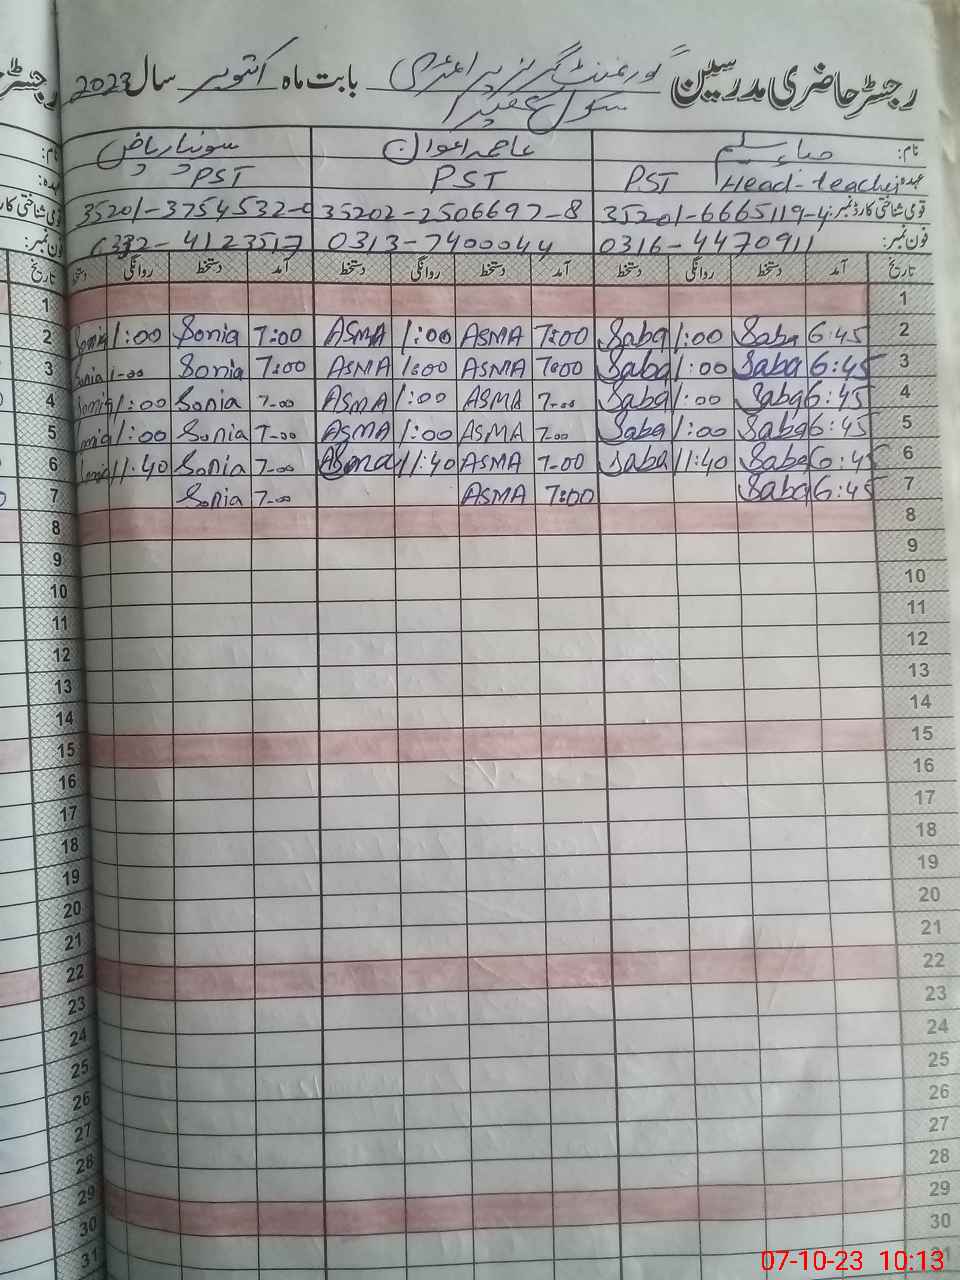 رجسٹر حاضری مدرسین گورنمنٹ گرلز پرائمری بابت ماہ اکتوبر سال 2023
سکول
نام: صباء سلیم عاصمہ اعوان سونیا ریاض
عہدہ: PST Head-teacher PST PST
قومی شناختی کارڈ نمبر: 35201-6665119-4 35202-2506697-8 35201-3754532-
فون نمبر: 0316-4470911 0313-7400044 4123517
تاریخ آمد دستخط روانگی دستخط آمد دستخط روانگی دستخط آمد دستخط روانگی تاریخ
1 1
2 6:45 Saba 1:00 Saba 7:00 ASMA 1:00 ASMA 7:00 Sonia 1:00 Sonia 2
3 6:45 Saba 1:00 Saba 7:00 ASMA 1:00 ASMA 7:00 Sonia 1-00 Sonia 3
4 6:45 Saba 1:00 Saba 7-00 ASMA 1:00 ASMA 7-00 Sonia 1:00 Sonia 4
5 6:45 Saba 1:00 Saba 7-00 ASMA 1:00 ASMA 7-00 Sonia 1:00 5
6 6:45 Saba 11:40 Saba 7-00 ASMA 11:40 Asma 7-00 Sonia 11:40 6
7 6:45 Saba 7:00 ASMA 7-00 Sonia 7
8 8
9 9
10 10
11 11
12 12
13 13
14 14
15 15
16 16
17 17
18 18
19 19
20 20
21 21
22 22
23 23
24 24
25 25
26 26
27 27
28 28
29 29
30 30
31 31
07-10-23 10:13